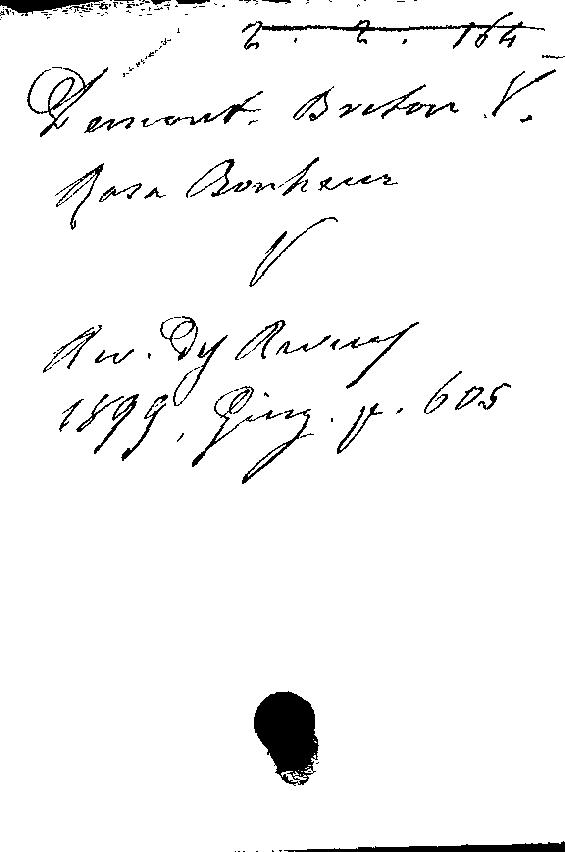 2. 2. 164
Demont-Breton V.
Rosa Bonheur
V
Rev. des Revues
1899, Ging. p. 605